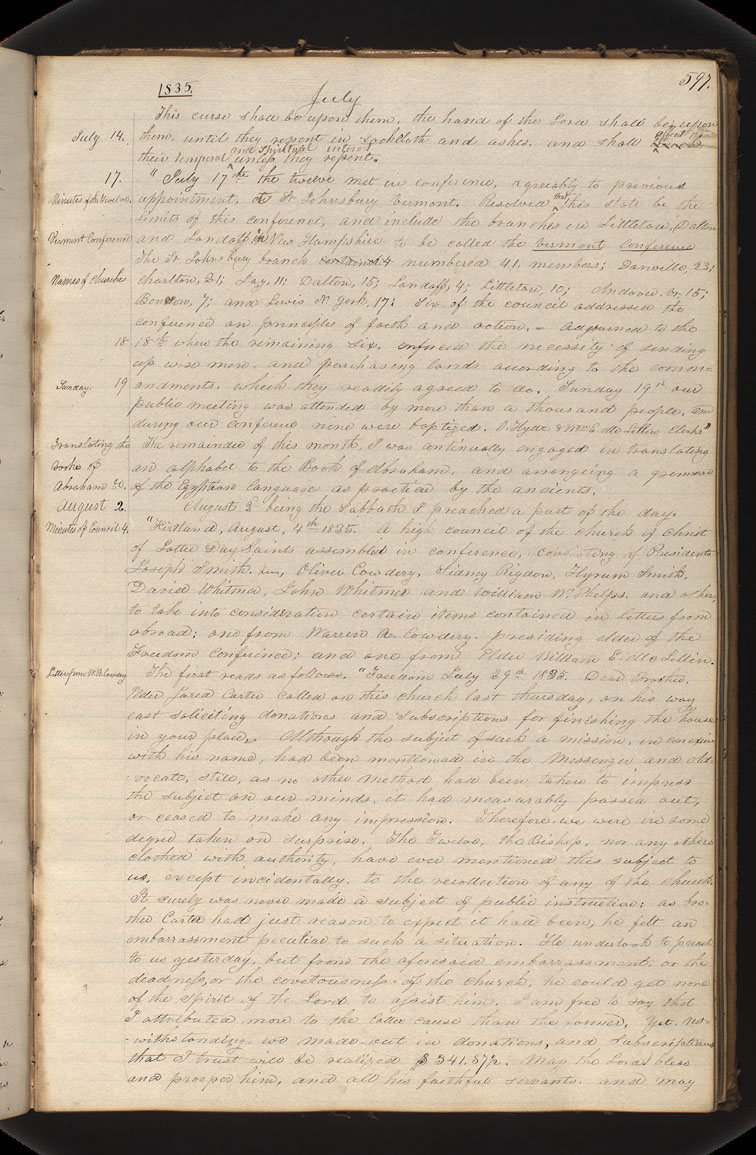 1835.
July
597.
This curse shall be upon them. the hand of the Lord shall be upon
July 14. them. until they repent in sackcloth and ashes. and shall affect their
and spiritual interest
their temporal unless they repent.
17. "July 17th the twelve met in conference, agreably to previous
Minutes of the Twelve. appointment, at St Johnsbury Vermont. Resolved that this state be the
limits of this conference, and include the branches in Littleton, Dalton
Vermont Conference and Landaff in New Hampshire to be called the Vermont Conference
The St Johnsbury branch numbered 41 members; Danville, 23;
Names of Churches Charlton, 21; Jay, 11; Dalton, 15; Landaff, 4; Littleton, 10; Andover, Vt 15;
Benson, 7; and Lewis N. York, 17; Six of the council addressed the
conference on principles of faith and action. — Adjourned to the
18 18th when the remaining six, enforced the necessity of sending
up wise men, and purchasing lands according to the comm-
Sunday. 19 andments. which they readily agreed to do. Sunday 19th our
public meeting was attended by more than a thousand people, and
during our conference nine were baptized. O. Hyde & Wm E. McLellin Clerks"
Translating the The remainder of this month, I was continually engaged in translating
Book of an alphabet to the Book of Abraham, and arrangeing a grammar
Abraham 30. of the Egyptian language as practiced by the ancients.
August 2. August 2 being the Sabbath I preached a part of the day.
Minutes of Council 4. "Kirtland, August, 4th 1835. A high council of the church of Christ
of Latter Day Saints assembled in conference, consisting of Presidents
Joseph Smith. Jun, Oliver Cowdery, Sidney Rigdon, Hyrum Smith,
David Whitmer, John Whitmer and William W. Phelps, and others
to take into consideration certain items contained in Letters from
abroad; one from Warren A. Cowdery. presiding elder of the
Freedom Conference; and one from Elder William E. McLellin.
Letter from W. A. Cowdery The first reads as follows. "Freedom July 29th 1835. Dear Brother,
Elder Jared Carter called on this church last thursday, on his way
east soliciting donations and subscriptions for finishing the house
in your place. Although the subject of such a mission, in conexion
with his name, had been mentioned in the Messenger and Ad-
-vocate, still, as no other method had been taken to impress
the subject on our minds, it had measurably passed out,
or ceased to make any impression. Therefore we were in some
degree taken on surprise. The Twelve, the Bishop, nor any others
clothed with authority, have ever mentioned this subject to
us, except incidentally, to the recollection of any of the church.
It surely was never made a subject of public instruction; as bro-
ther Carter had just reason to expect it had been, he felt an
embarrassment peculiar to such a situation. He undertook to preach
to us yesterday, but from the aforesaid embarrassment. or the
deadness, or the covetousness of the church, he could get none
of the spirit of the Lord to assist him. I am free to say that
I attributed more to the latter cause than the former, Yet not-
-withstanding we made out in donations, and subscriptions
that I trust will be realized $341.37½. May the Lord bless
and prosper him, and all his faithful servants. and may